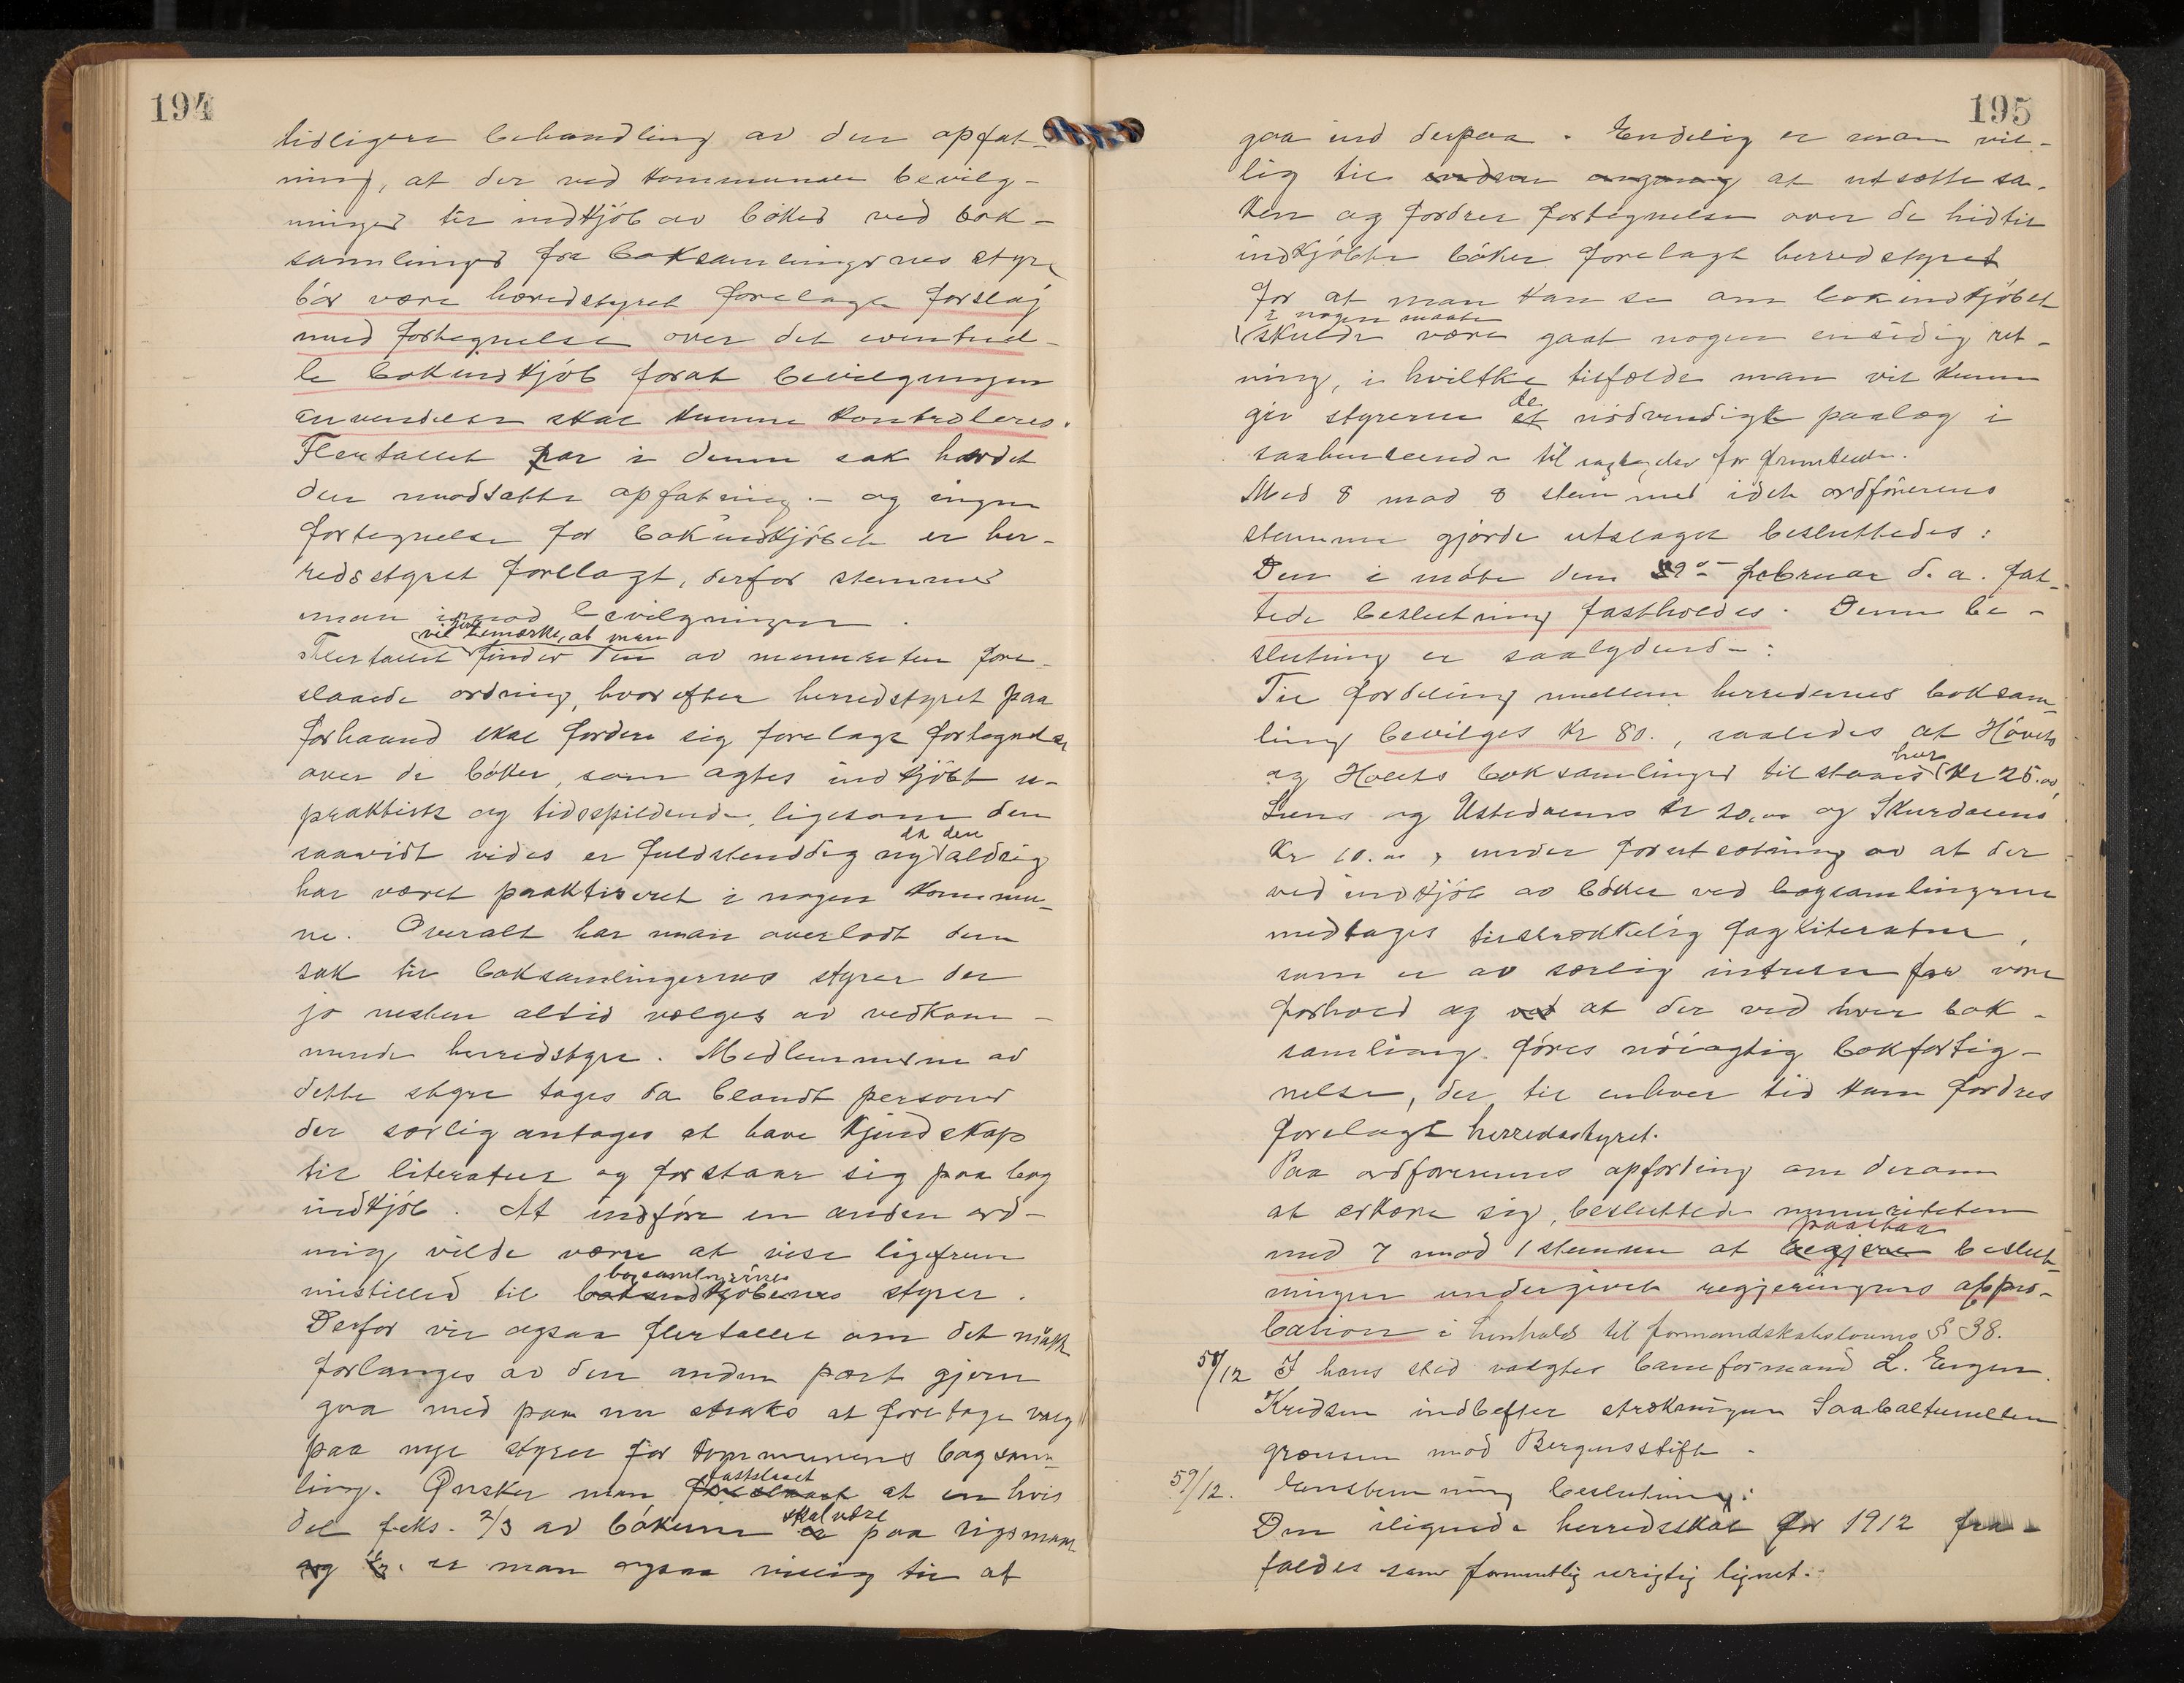 194
tidligere behandling av den opfat-
ning, at der ved kommunale bevilg-
ninger til indkjöb av böker ved bok-
samlinger fra boksamlingernes styre
bör være herredstyret forelagt forslag
med fortegnelse over det eventuel-
le bokindkjöb forat bevilgningen
anvendelse skal kunne kontroleres.
Flertallet har i denne sak hævdet
den motsatte opfatning - og ingen
fortegnelse for bokindkjöbet er her-
redsstyret forelagt, derfor stemmer
man imod bevilgningen.
vil bemærke, at man
Flertallet finder den av minoriteten fore-
slaaede ordning, hvorefter herredstyret paa
forhaand skal fordre sig forelagt fortegnelse
over de böker, som agtes indkjöbt u-
praktisk og tidsspildende, ligesom den
da den
saavidt vides er fuldstendig ny aldrig
har været praktiseret i nogen kommu-
ne. Overalt har man overlatt denne
sak til boksamlingernes styrer der
jo nesten altid velges av vedkom-
mende herredstyre. Medlemmerne av
dette styre tages da blandt personer
der særlig antages at have kjendskap
til literatur og forstaar sig paa bog
indkjöb. At indföre en anden ord-
ning vilde være at vise ligefrem
bogsamlingernes
mistillid til bokindkjöbernes styrer.
Derfor vil ogsaa flertallet om det maatte
forlanges av den anden part gjerne
gaa med paa nu straks at foretage valg
paa nye styrer for kommunens bogsam-
fastslaaet
ling. Ønsker man foreslaaet at en hvis
skal være
del f.eks. 2/3 av bökerne er paa rigsmaal
og er man ogsaa villig til at
195
gaa ind derpaa. Endelig er man vil-
lig til at utsætte sa-
ken og fordrer fortegnelse over de hidtil
indkjöbte böker forelagt herredstyret
for at man kan se om bokindkjöbet
i nogen maate
skulde være gaat nogen ensidig ret-
ning, i hvilke tilfælde man vil kunne
de
giv styrerne et nödvendige paalæg i
saahenseende til iagtagelse for fremtiden.
Med 8 mod 8 stemmer idet ordförerens
stemme gjorde utslaget besluttedes:
Den i möte den februar d. a. fat-
tede beslutning fastholdes. Denne be-
slutning er saalydende:
Til fordeling mellem herredernes boksam-
ling bevilges kr 80., saaledes at Hövets
hver
og Holets boksamlinger tilstaaes kr 25.00,
Liens og Ustedalens kr 20,00 og Skurdalens
kr 10.00, under forutsætning av at der
ved indkjöb av böker ved bogsamlingerne
medtages tilstrækkelig fagliteratur,
som er av særlig interesse for vore
forhold og ved at der ved hver bok-
samling föres nöiagtig bokforteg-
nelse, der til enhver tid kan fordres
forelagt herredsstyret.
Paa ordförerens opfording om derom
at erklære sig, besluttede minoriteten
paastaa
med 7 mod 1 stemme at begjere beslut-
ningen undergivet regjeringens appro-
bation i henhold til formandskabslovens § 38.
58/12 I hans sted valgtes baneformand L. Engen.
Kredsen indbefter strækningen Laabaltunellen
grænsen mod Bergensstift.
59/12. Enstemmig beslutning:
Den ilignede herredsskat for 1912 fra-
faldes som formentlig urigtig lignet.